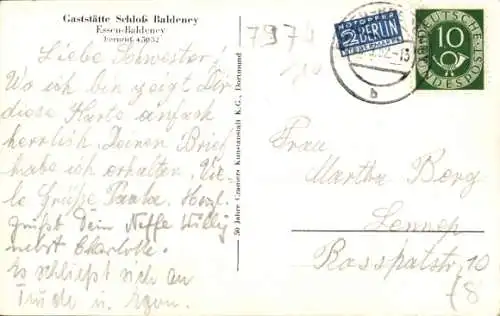 Gaststätte Schloß Baldeney
Essen-Baldeney
Fernruf 45032
Liebe Schwester!
Wo ich bin zeigt Dir
diese Karte, einfach
herrlich. Deinen Brief
habe ich erhalten. Vie-
le Grüße Paula. Herzl.
grüßt Dein Neffe Willy
nebst Charlotte.
Es schließt sich an
Trude u. Egon.
50 Jahre Cramers Kunstanstalt K.G., Dortmund
7974
NOTOPFER
2 BERLIN
STEUERMARKE
b
DEUTSCHE
10
BUNDESPOST
Frau
Martha Berg
Lennep
Rosspatstr. 10